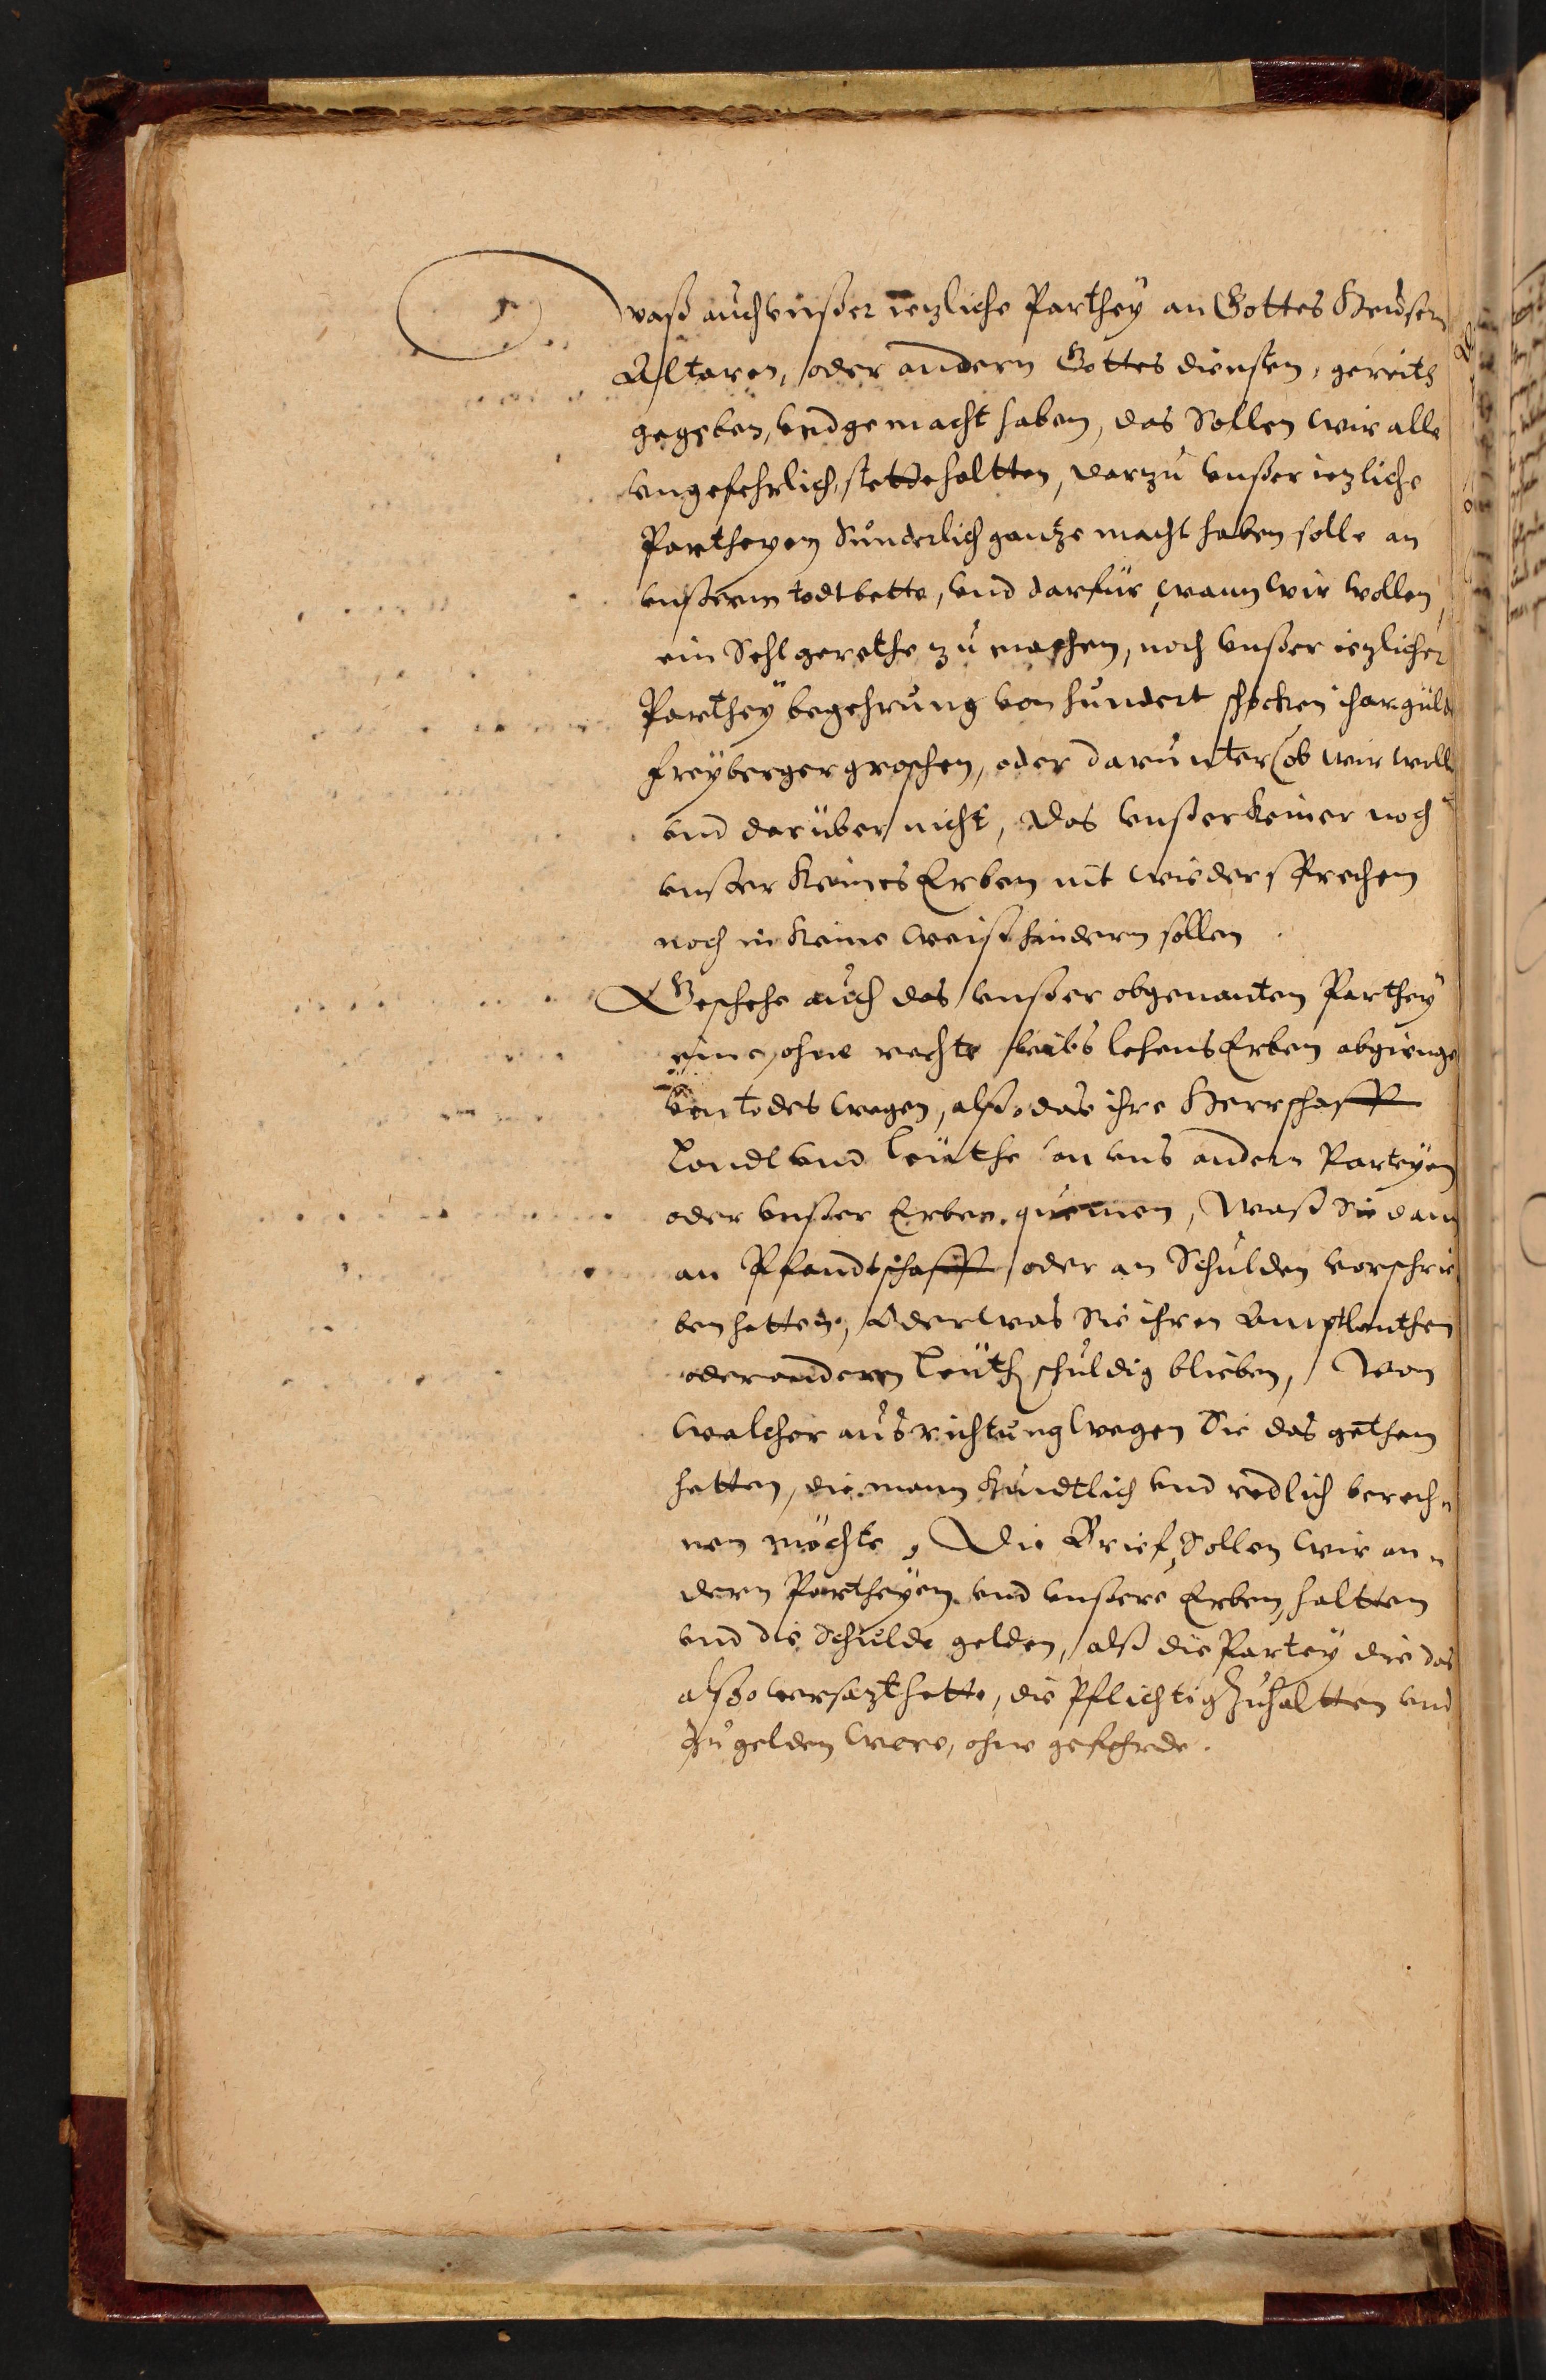 waß auch vnßer iezliche Parthey an Gottes Heusern
Altaren, oder andern Gottes diensten, gereits
gegeben, vnd gemacht haben, das Sollen wir alle
vngefehrlich stette haltten, darzu vnßer iezliche
Partheyen Sunderlich gantze macht haben solle an
vnßerm todtbette, vnd darfür, wann wir wollen,
ein Sehlgerethe zu machen, noch vnßer iezlicher
Parthey begehrung von hundert schocken ihargüld
freyberger groschen, oder darunter (ob wir woll
vnd darüber nicht, das vnßer keiner noch
vnßer keines Erben nit wiedersprechen
noch in keine weiß hindern sollen.
Geschehe auch das vnßer obgenanten Parthey
eine, ohne rechte leibs lehens Erben abgienge
von todes wegen, alßo das ihre Herrschafft
Landt vnd Leuthe an vns andern Parteyen
oder vnßer Erben quemen, waß Sie dann
an Pfandtschafft oder an Schulden vorschrie
ben hetten, Oder was Sie ihren Amptleuthen
oder andern Leuth schuldig blieben, von
welcher ausrichtung wegen Sie das gethan
hetten, die mann kundtlich vnd redlich berech-
nen möchte, Die Brief Sollen wir an-
dern Partheyen vnd vnßere Erben, haltten
vnd die Schulde gelden, alß die Partey die das
alßo versazt hette, die Pflichtig zu haltten vnd
zu gelden were, ohne gefehrde.